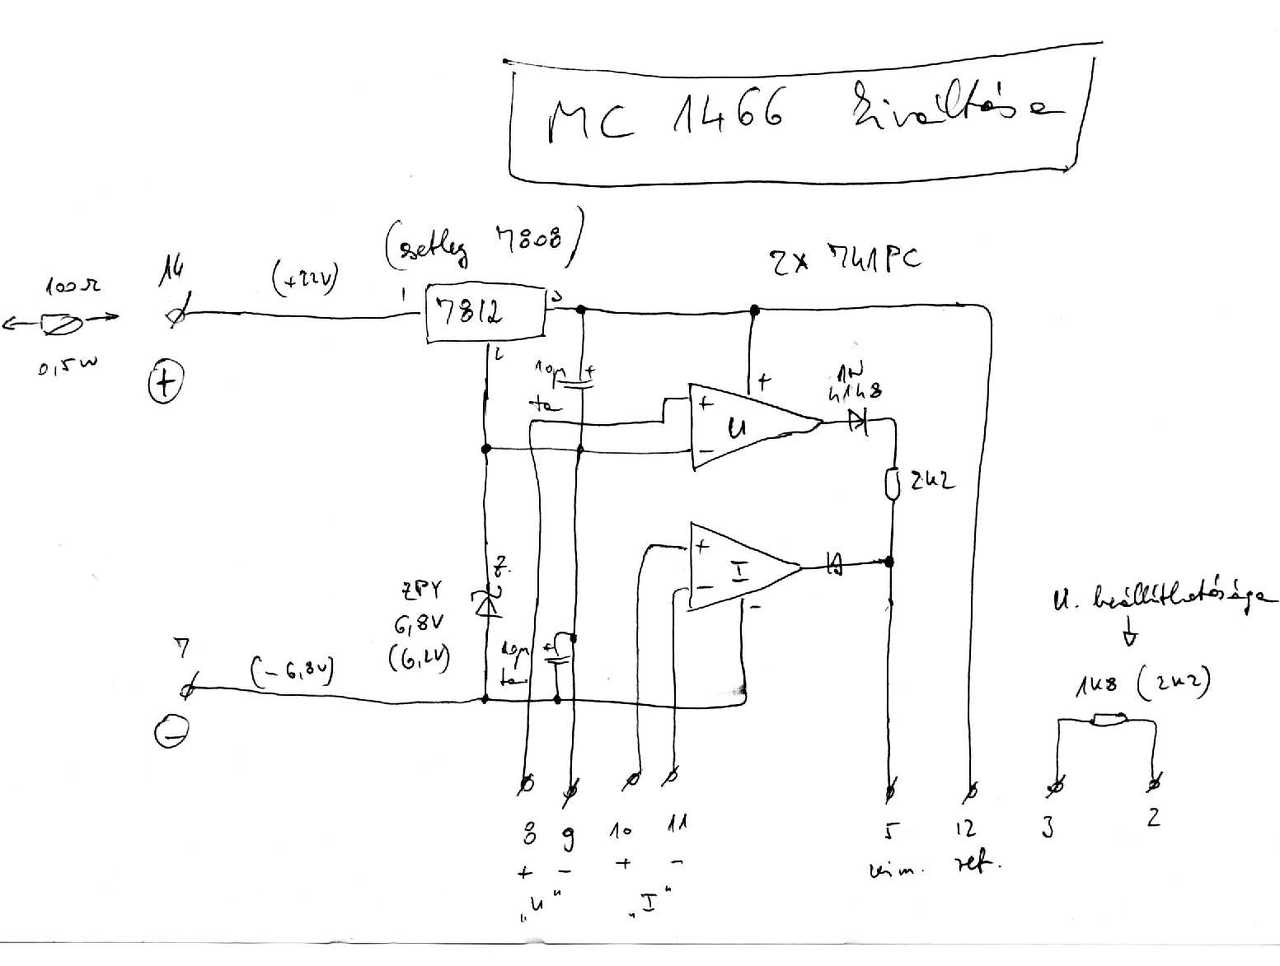 MC 1466 kiváltása
(esetleg 7808)
2x 741PC
14
(+22V)
1
7812
3
2
100Ω
0,5W
+
10µ
ta
+
+
U
-
+
1N
4148
2k2
Z.
ZPY
6,8V
(6,2V)
+
I
-
-
7
(-6,8V)
-
10µ
ta
+
U. beállíthatósága
1k8 (2k2)
8 9 10 11 5 12 3 2
+ - + - kim. ref.
„U" „I"